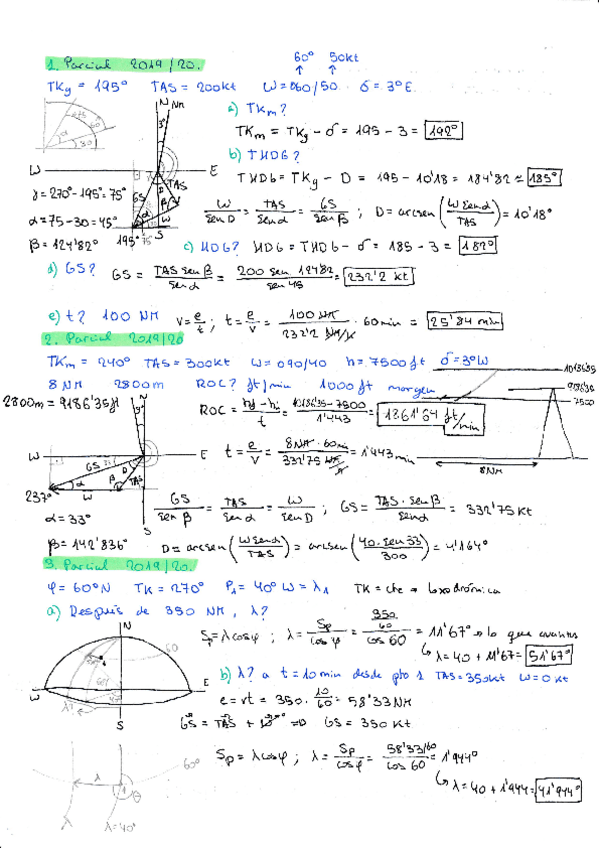 60° 50kt
1. Parcial 2019/20.
TKg = 195° TAS = 200kt W = 060/50 δ = 3°E
N
Nm
3°
a) TKm?
TKm = TKg - δ = 195 - 3 = 192°
b) THDG?
W E
THDG = TKg - D = 195 - 10'18 = 184'82 ≈ 185°
γ = 270° - 195° = 75°
α = 75 - 30 = 45°
β = 124'82°
GS TAS D α β W
195° 75° S
W/sen D = TAS/sen α = GS/sen β ; D = arcsen (W sen α/TAS) = 10'18°
c) HDG? HDG = THDG - δ = 185 - 3 = 182°
d) GS? GS = TAS sen β/sen α = 200 sen 124'82/sen 45 = 232'2 kt
e) t? 100 NM v = e/t ; t = e/v = 100 NM/232'2 NM/h · 60 min = 25'84 min
2. Parcial 2019/20
TKm = 240° TAS = 300kt W = 090/40 h = 7500ft δ = 3°W
8 NM 2800m ROC? ft/min 1000ft margen
10186'35
9186'35
7500
8NM
2800m = 9186'35ft
N
3°
ROC = hf - hi/t = 10186'35 - 7500/1'443 = 1861'64 ft/min
W E
t = e/v = 8NM · 60min/332'75 NM/h = 1'443 min
GS D α β TAS W
237°
S
α = 33°
β = 142'836°
GS/sen β = TAS/sen α = W/sen D ; GS = TAS · sen β/sen α = 332'75kt
D = arcsen (W sen α/TAS) = arcsen (40 · sen 33/300) = 4'164°
3. Parcial 2019/20.
φ = 60°N TK = 270° P1 = 40°W = λ1 TK = cte → loxodrómica
a) Después de 350 NM, λ?
N
60
W E
λ?
S
Sp = λ cos φ ; λ = Sp/cos φ = 350/60/cos 60 = 11'67° → lo que avanzas
↳ λ = 40 + 11'67 = 51'67°
b) λ? a t = 10min desde pto 1 TAS = 350kt W = 0kt
e = vt = 350 · 10/60 = 58'33 NM
GS = TAS + W ⇒ GS = 350 kt
Sp = λ cos φ ; λ = Sp/cos φ = 58'33/60/cos 60 = 1'944°
↳ λ = 40 + 1'944 = 41'944°
60°
λ
θ
λ λ=40°